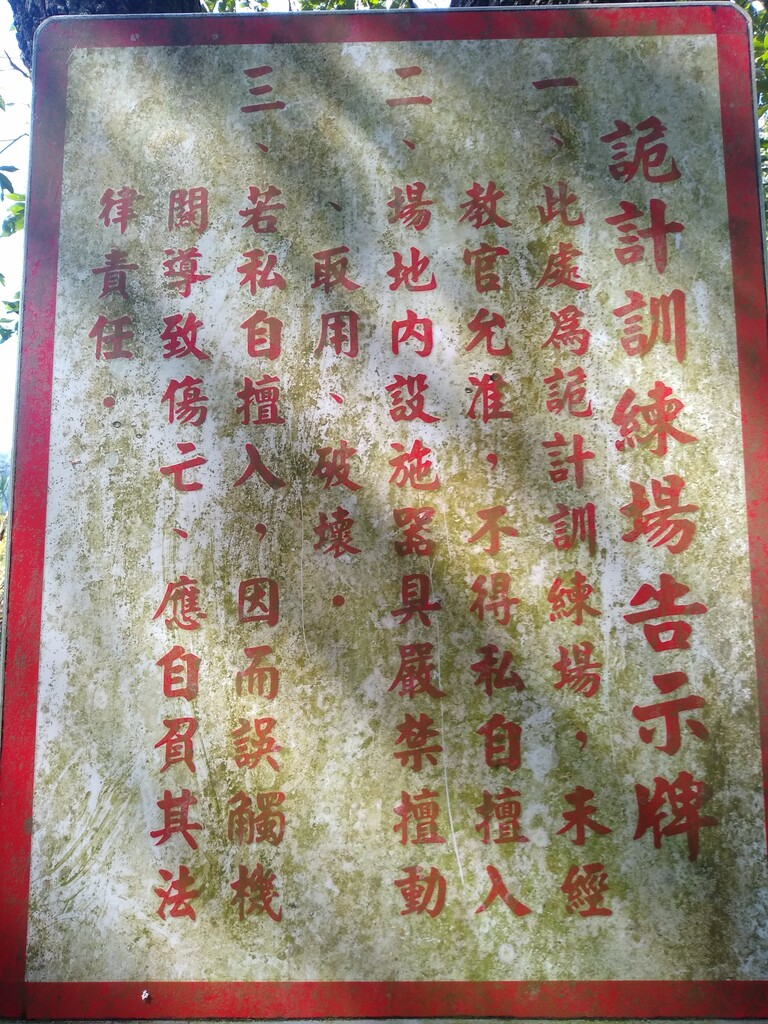 詭計訓練場告示牌
一、此處為詭計訓練場，未經
教官允准，不得私自擅入
二、場地內設施器具嚴禁擅動
、取用、破壞．
三、若私自擅入，因而誤觸機
關導致傷亡、應自負其法
律責任．